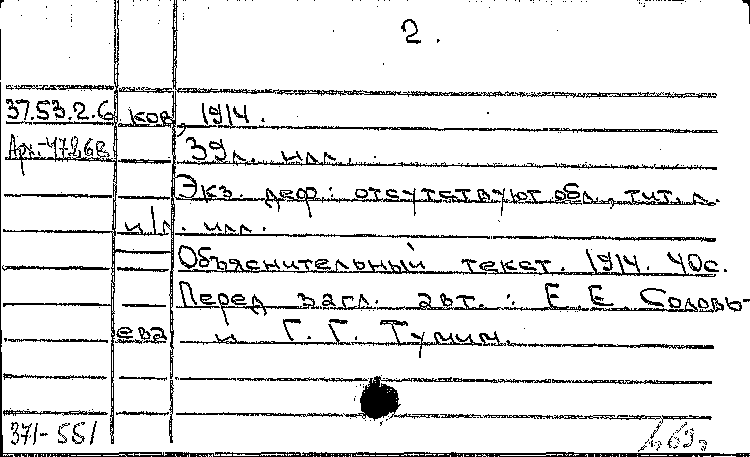 2.
37.53.2.6 ков, 1914.
39л. илл.
Экз. деф.: отсутствуют обл., тит. л.
и/л. илл.
Объяснительный текст. 1914. 40с.
Перед загл. авт.: Е. Е. Соловь-
ева и Г. Г. Тумим.
371-551